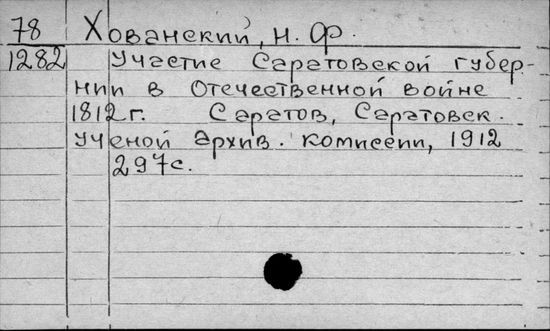 78 Хованский, Н. Ф.
1282 Участие Саратовской губер-
нии в Отечественной войне
1812 г. Саратов, Саратовск.
Ученой архив. комиссии, 1912
297с.